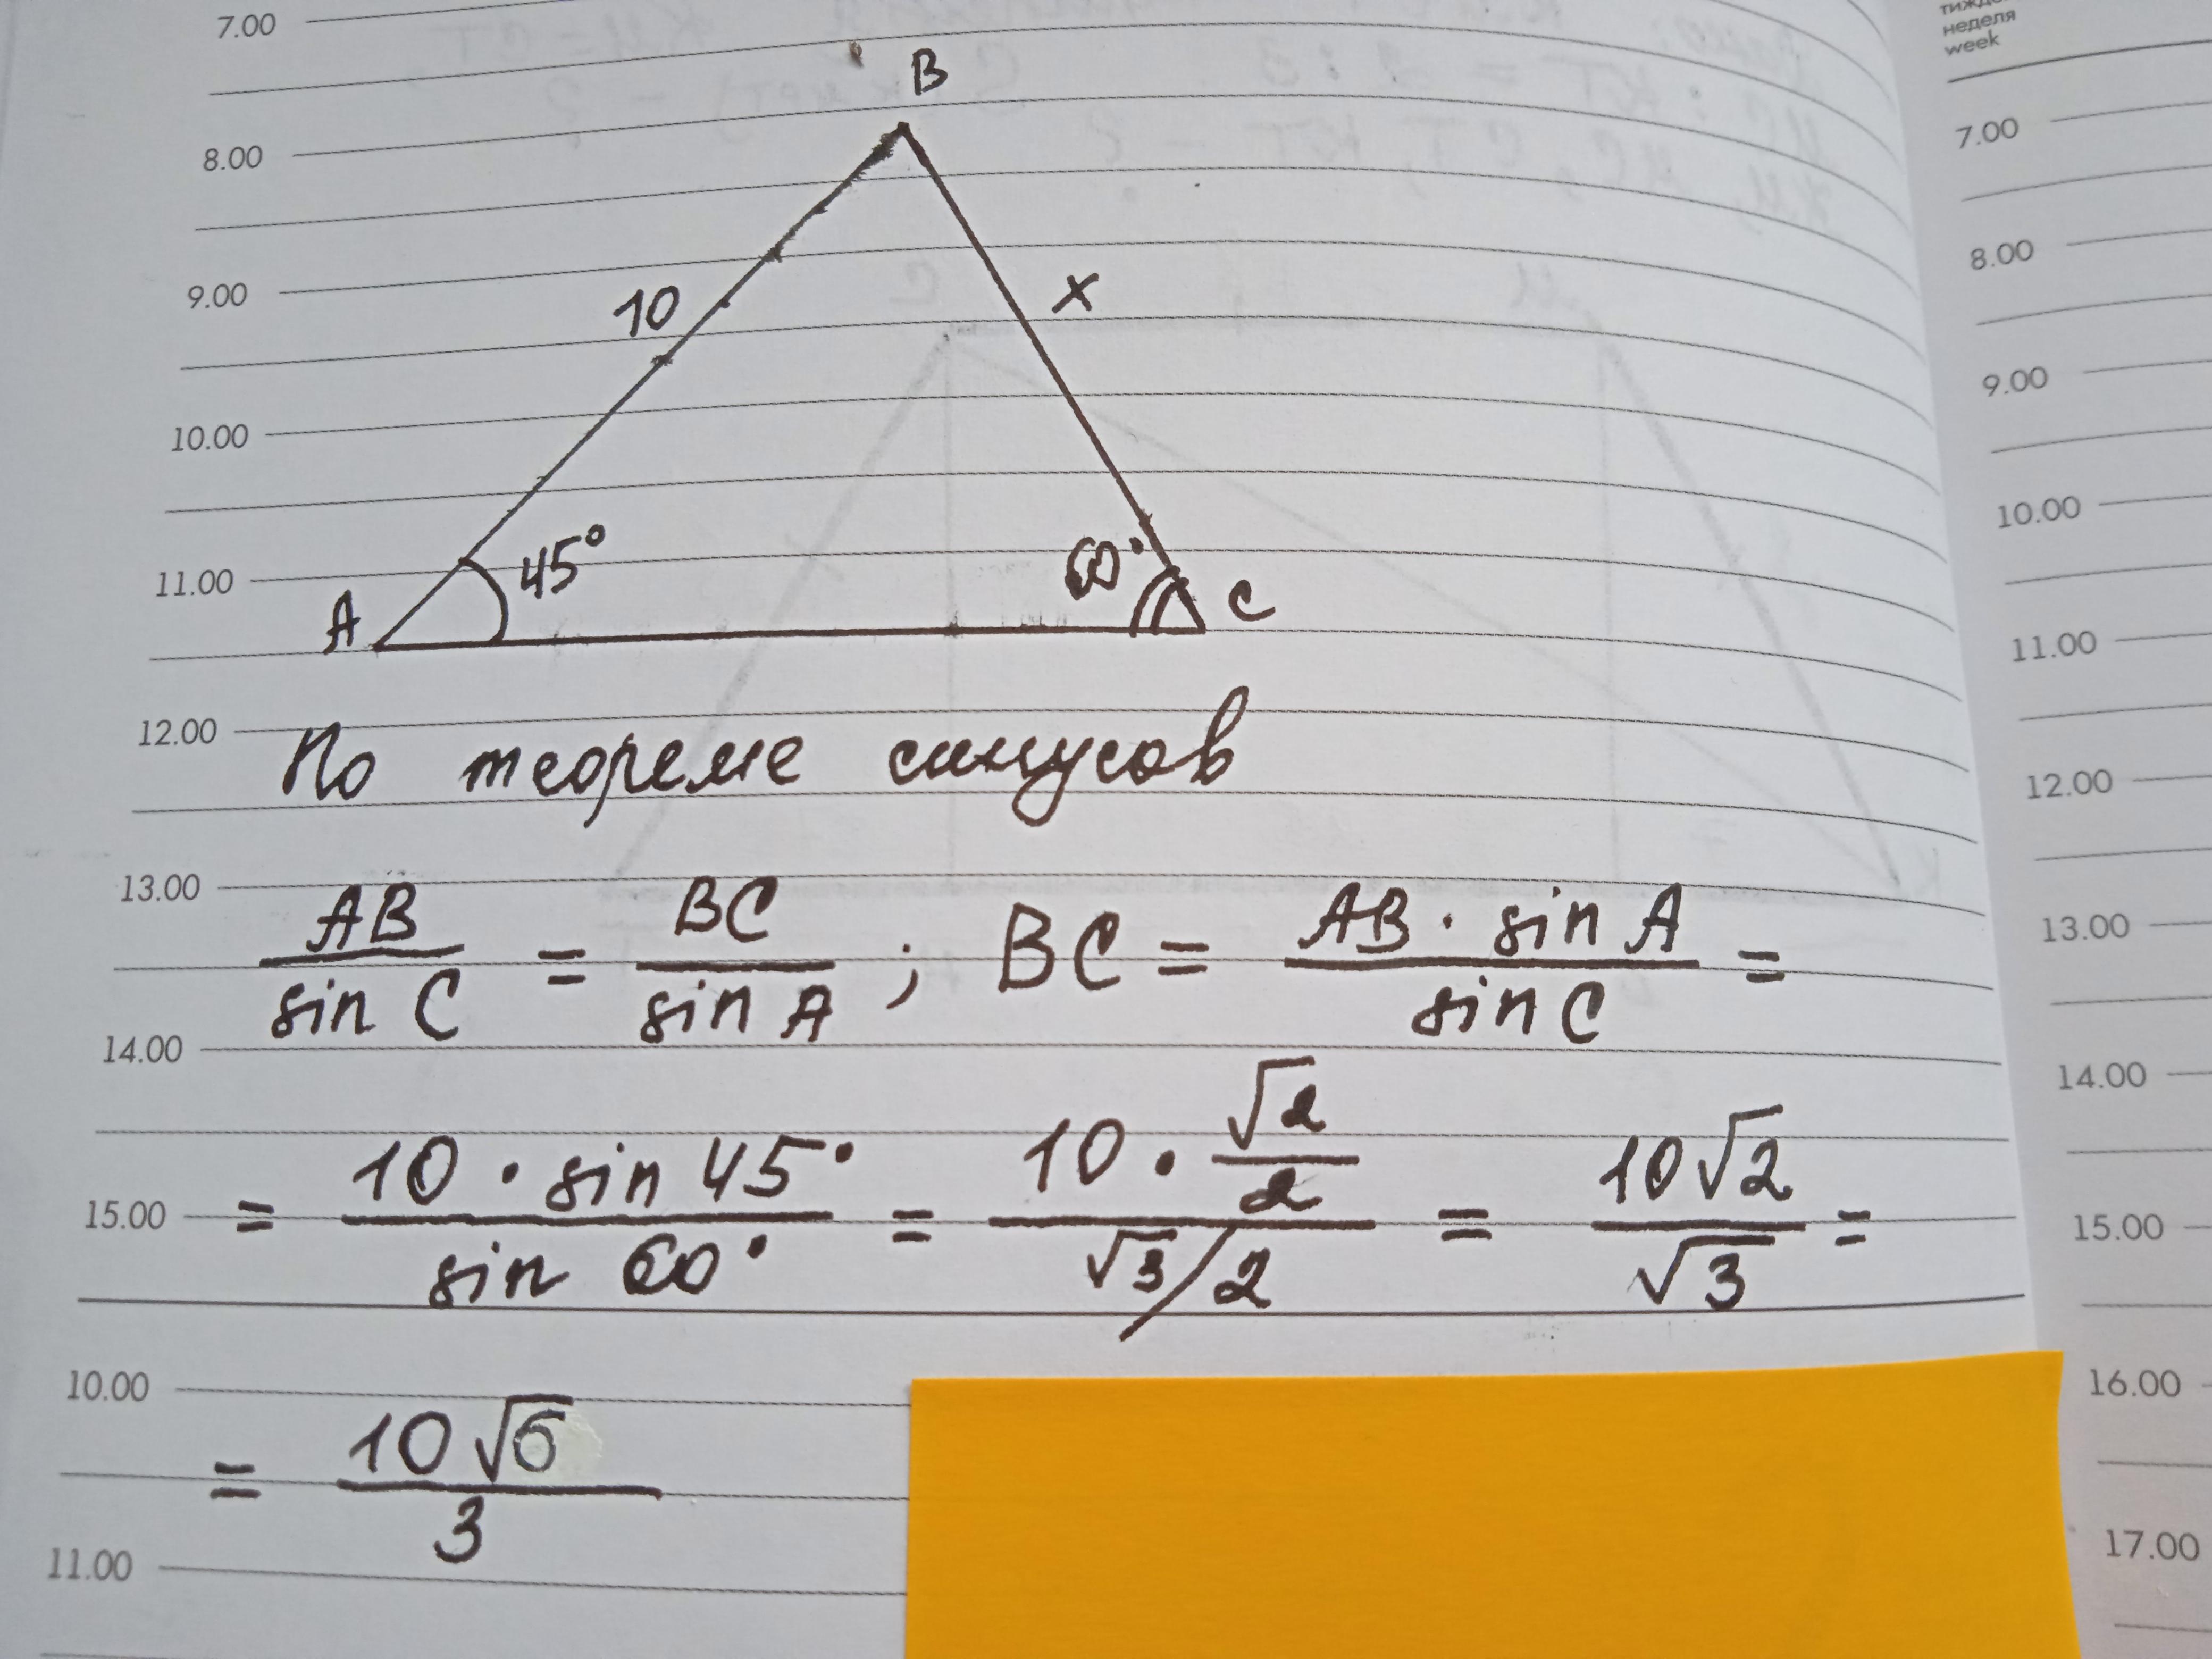 тиждень
неделя
week
7.00
8.00
9.00
10.00
11.00
12.00
13.00
14.00
15.00
10.00
11.00
B
10
x
45°
60°
A
C
По теореме синусов
AB/sin C = BC/sin A ; BC = AB · sin A/sin C =
= 10 · sin 45°/sin 60° = 10 · √2/2/√3/2 = 10√2/√3 =
= 10√6/3
7.00
8.00
9.00
10.00
11.00
12.00
13.00
14.00
15.00
16.00
17.00